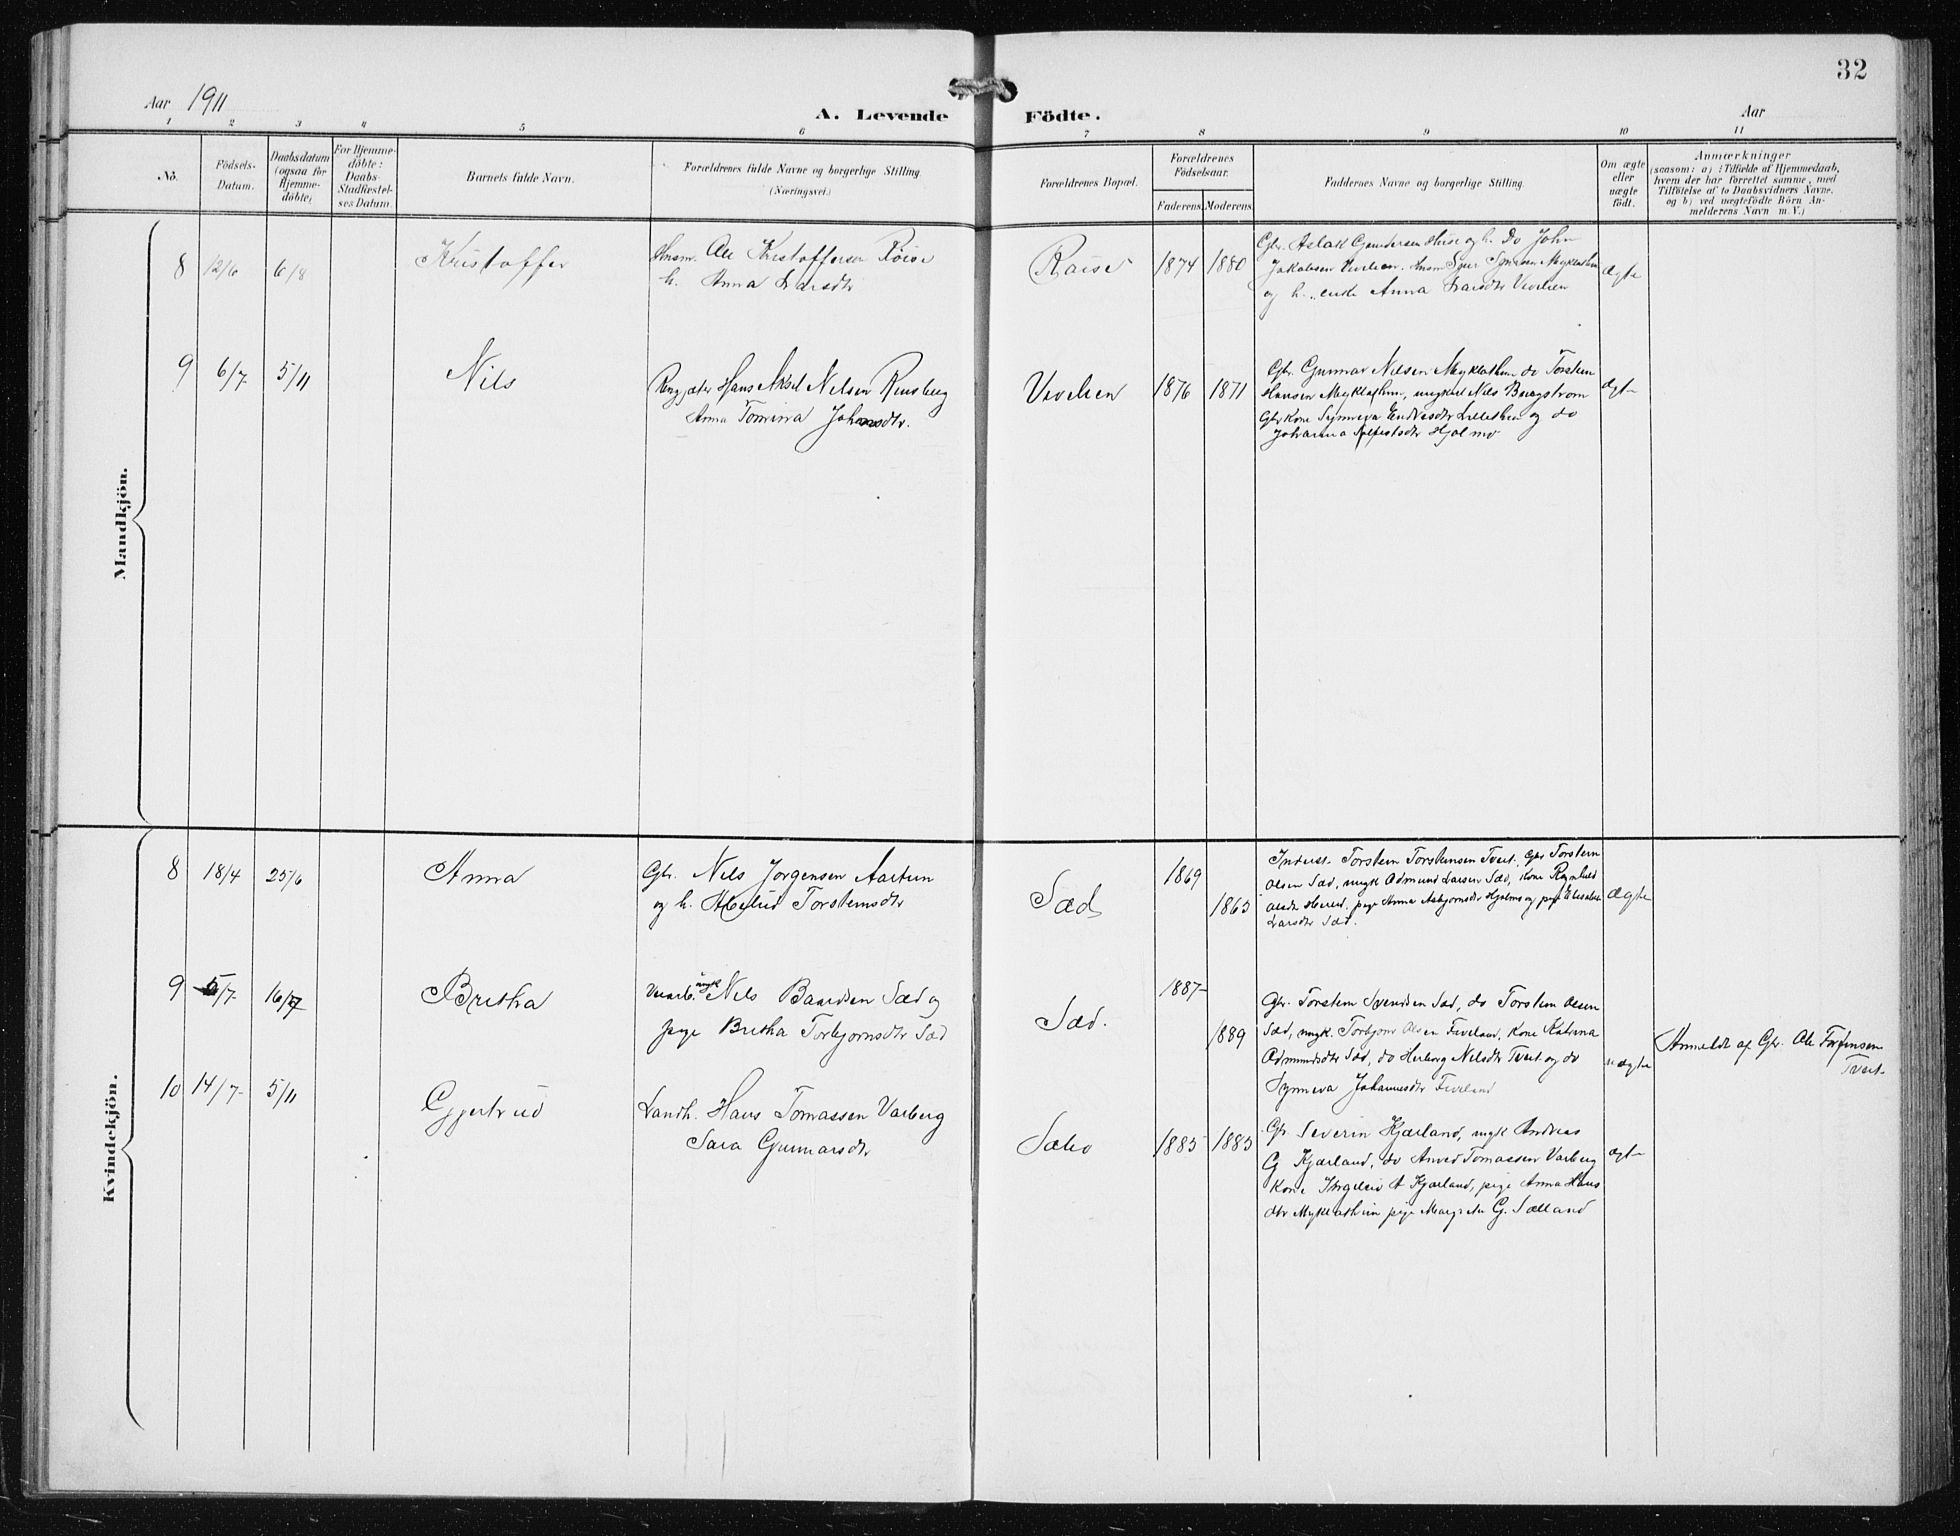 32
Aar 1911
A. Levende Födte.
Aar
1 2 3 4 5 6 7 8 9 10 11
No.
Födsels-
Datum.
Daabsdatum
(ogsaa for
Hjemme-
döbte)
For Hjemme-
döbte:
Daabs-
Stadfæstel-
ses Datum
Barnets fulde Navn.
Forældrenes fulde Navne og borgerlige Stilling.
(Næringsvei.)
Forældrenes Bopæl.
Forældrenes
Födselsaar.
Faderens. Moderens.
Faddernes Navne og borgerlige Stilling.
Om ægte
eller
uægte
födt.
Anmærkninger
(saasom: a) i Tilfælde af Hjemmedaab,
hvem der har forrettet samme, med
Tilföielse af to Daabsvidners Navne.
og b) ved uægtefödte Börn An-
melderens Navn m. V.)
Mandkjön.
8 12/6 6/8 Kristoffer
Husm. Ole Kristoffersen Röise
h. Anna Larsdtr
Röise 1874 1880
Gbr. Aslak Gundersen Huse og h. Do John
Jakobsen Sjur Sjursen Myklethun
og h. enke Anna Larsdtr
ægte
9 6/7 5/11 Nils
Hans Aksel Nilsen Rensberg
Anna Tomina Johansdtr.
1876 1871
Gbr. Gunnar Nilsen Myklethun do Torstein
Hansen Myklethun, ungkarl Nils Bergstrom
Gbrkone Synneva Endresdtr Lillethun og do
Johanna Hjolmo
ægte
Kvindekjön.
8 18/4 25/6 Anna
Gbr. Nils Jorgensen Aartun
og h. Torsteinsdtr
Sæd 1869 1865
Torstein Torsteinsen Tveit. Gbr Torstein
Olsen Sæd, ungk Admund Larsen Sæd, Kone Ragnhild
Olsdtr pige Anna Asbjornsdtr Hjolmo og pige Elisabet
Larsdtr Sæd.
ægte
9 5/7 16/7 Britha
ungk Nils Baardsen Sæd og
pige Britha Torbjornsdtr Sæd
Sæd. 1887 1889
Gbr. Torstein Svendsen Sæd, do Torstein Olsen
Sæd, ungk. Torbjorn Olsen Fiveland, Kone Katrina
Admundsdtr Sæd, do Herborg Nilsdtr Tveit og do
Synneva Johannesdtr Fiveland
uægte
Anmeldt af Gbr. Ole
Tveit.
10 14/7 5/11 Gjertrud
Landh. Hans Tomassen Varberg
Sara Gunnarsdtr
Sæbo 1885 1885
Gbr Severin Kjærland, ungk Andreas
G Kjærland, do Anved Tomassen Varberg
Kone Kjærland, pige Anna Hans
dtr Myklethun pige Margreta G. Sælland
ægte